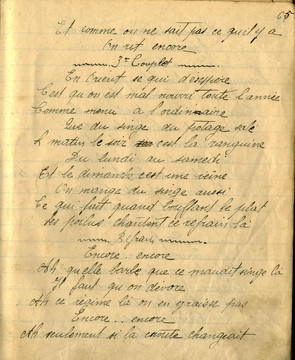 65
Et comme on ne sait pas ce qu'il y a
On rit encore
3e Couplet
En Orient ce qui
C'est qu'on est mal nourri toute l'année
Comme menu à l'ordinaire
Que du singe du potage salé
L matin le soir c'est la
Du lundi au samedi
Et le dimanche c'est une
On mange du singe aussi
Ce qui fait quand bouffant le plat
Les poilus chantent ce refrain là
Refrain
Encore.. encore
Ah quelle barbe que ce maudit singe là
Il faut qu'on dévore
Ah ce régime là on en graisse pas
Encore... encore
Ah seulement si la changeait